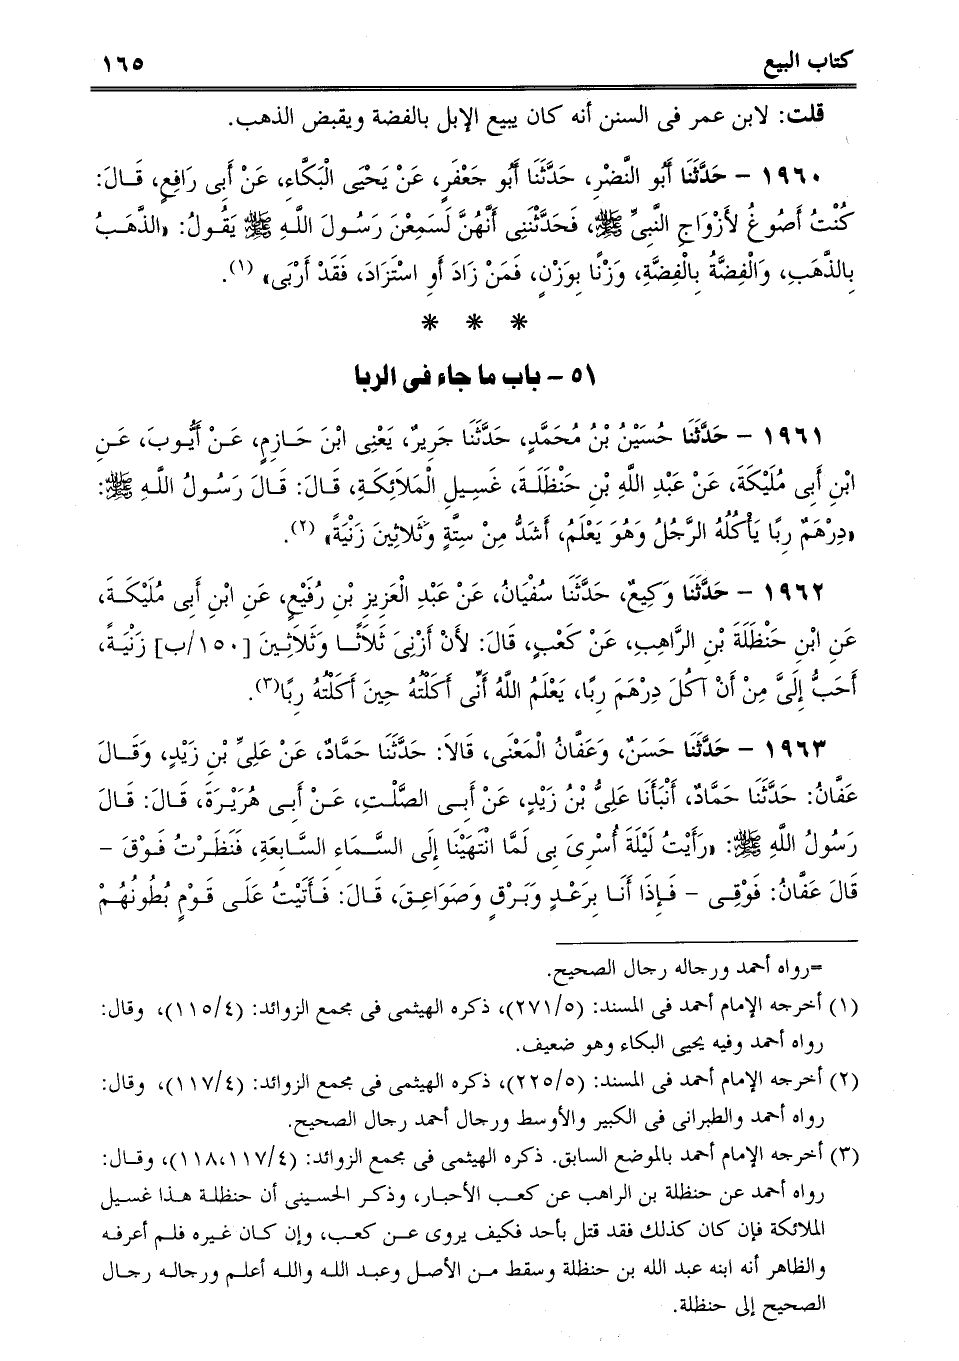 كتاب البيع ١٦٥
قلت: لابن عمر فى السنن أنه كان يبيع الإبل بالفضة ويقبض الذهب.
١٩٦٠ – حَدَّثَنَا أَبُو النَّضْرِ، حَدَّثَنَا أَبُو جَعْفَرٍ، عَنْ يَحْيَى الْبَكَّاءِ، عَنْ أَبِى رَافِعٍ، قَـالَ:
كُنْتُ أَصُوغُ لأَزْوَاجِ النَّبِىِّ ﷺ، فَحَدَّثْنَنِى أَنَّهُنَّ لَسَمِعْنَ رَسُولَ اللَّهِ ﷺ يَقُولُ: «الذَّهَبُ
بِالذَّهَبِ، وَالْفِضَّةُ بِالْفِضَّةِ، وَزْنًا بِوَزْنٍ، فَمَنْ زَادَ أَوِ اسْتَزَادَ، فَقَدْ أَرْبَى» (١).
* * *
٥١ – باب ما جاء فى الربا
١٩٦١ – حَدَّثَنَا حُسَيْنُ بْنُ مُحَمَّدٍ، حَدَّثَنَا جَرِيرٌ، يَعْنِى ابْنَ حَـازِمٍ، عَـنْ أَيُّـوبَ، عَـنِ
ابْنِ أَبِى مُلَيْكَةَ، عَنْ عَبْدِ اللَّهِ بْنِ حَنْظَلَـةَ، غَسِيلِ الْمَلاَئِكَةِ، قَـالَ: قَـالَ رَسُـولُ اللَّـهِ ﷺ:
«دِرْهَمُ رِبًا يَأْكُلُهُ الرَّجُلُ وَهُوَ يَعْلَمُ، أَشَدُّ مِنْ سِتَّةٍ وَثَلاثِينَ زَنْيَةً» (٢).
١٩٦٢ – حَدَّثَنَا وَكِيعٌ، حَدَّثَنَا سُفْيَانُ، عَنْ عَبْدِ الْعَزِيزِ بْنِ رُفَيْعٍ، عَنِ ابْنِ أَبِى مُلَيْكَـةَ،
عَنِ ابْنِ حَنْظَلَةَ بْنِ الرَّاهِبِ، عَنْ كَعْبٍ، قَالَ: لأَنْ أَزْنِىَ ثَلاَثًـا وَثَلاَثِـينَ [١٥٠/ب] زَنْيَـةً،
أَحَبُّ إِلَىَّ مِنْ أَنْ آكُلَ دِرْهَمَ رِبًا، يَعْلَمُ اللَّهُ أَنِّى أَكَلْتُهُ حِينَ أَكَلْتُهُ رِبًا(٣).
١٩٦٣ – حَدَّثَنَا حَسَنٌ، وَعَفَّانُ الْمَعْنَى، قَالاَ: حَدَّثَنَا حَمَّادٌ، عَنْ عَلِىِّ بْنِ زَيْدٍ، وَقَـالَ
عَفَّانُ: حَدَّثَنَا حَمَّادٌ، أَنْبَأَنَا عَلِىُّ بْنُ زَيْدٍ، عَنْ أَبِـى الصَّلْـتِ، عَـنْ أَبِـى هُرَيْـرَةَ، قَـالَ: قَـالَ
رَسُولُ اللَّهِ ﷺ: «رَأَيْتُ لَيْلَةَ أُسْرِىَ بِى لَمَّا انْتَهَيْنَا إِلَى السَّـمَاءِ السَّـابِعَةِ، فَنَظَـرْتُ فَـوْقَ –
قَالَ عَفَّانُ: فَوْقِـى – فَـإِذَا أَنَـا بِرَعْـدٍ وَبَـرْقٍ وَصَوَاعِـقَ، قَـالَ: فَـأَتَيْتُ عَلَـى قَـوْمٍ بُطُونُهُـمْ
=رواه أحمد ورجاله رجال الصحيح.
(١) أخرجه الإمام أحمد فى المسند: (٢٧١/٥)، ذكره الهيثمى فى مجمع الزوائد: (١١٥/٤)، وقال:
رواه أحمد وفيه يحيى البكاء وهو ضعيف.
(٢) أخرجه الإمام أحمد فى المسند: (٢٢٥/٥)، ذكره الهيثمى فى مجمع الزوائد: (١١٧/٤)، وقال:
رواه أحمد والطبرانى فى الكبير والأوسط ورجال أحمد رجال الصحيح.
(٣) أخرجه الإمام أحمد بالموضع السابق. ذكره الهيثمى فى مجمع الزوائد: (١١٨،١١٧/٤)، وقـال:
رواه أحمد عن حنظلة بن الراهب عن كعب الأحبار، وذكـر الحسينى أن حنظلـة هـذا غسيل
الملائكة فإن كان كذلك فقد قتل بأحد فكيف يروى عـن كعب، وإن كـان غـيره فلـم أعرفـه
والظاهر أنه ابنه عبد الله بن حنظلة وسقط مـن الأصـل وعبـد اللـه واللـه أعلـم ورجالـه رجـال
الصحيح إلى حنظلة.